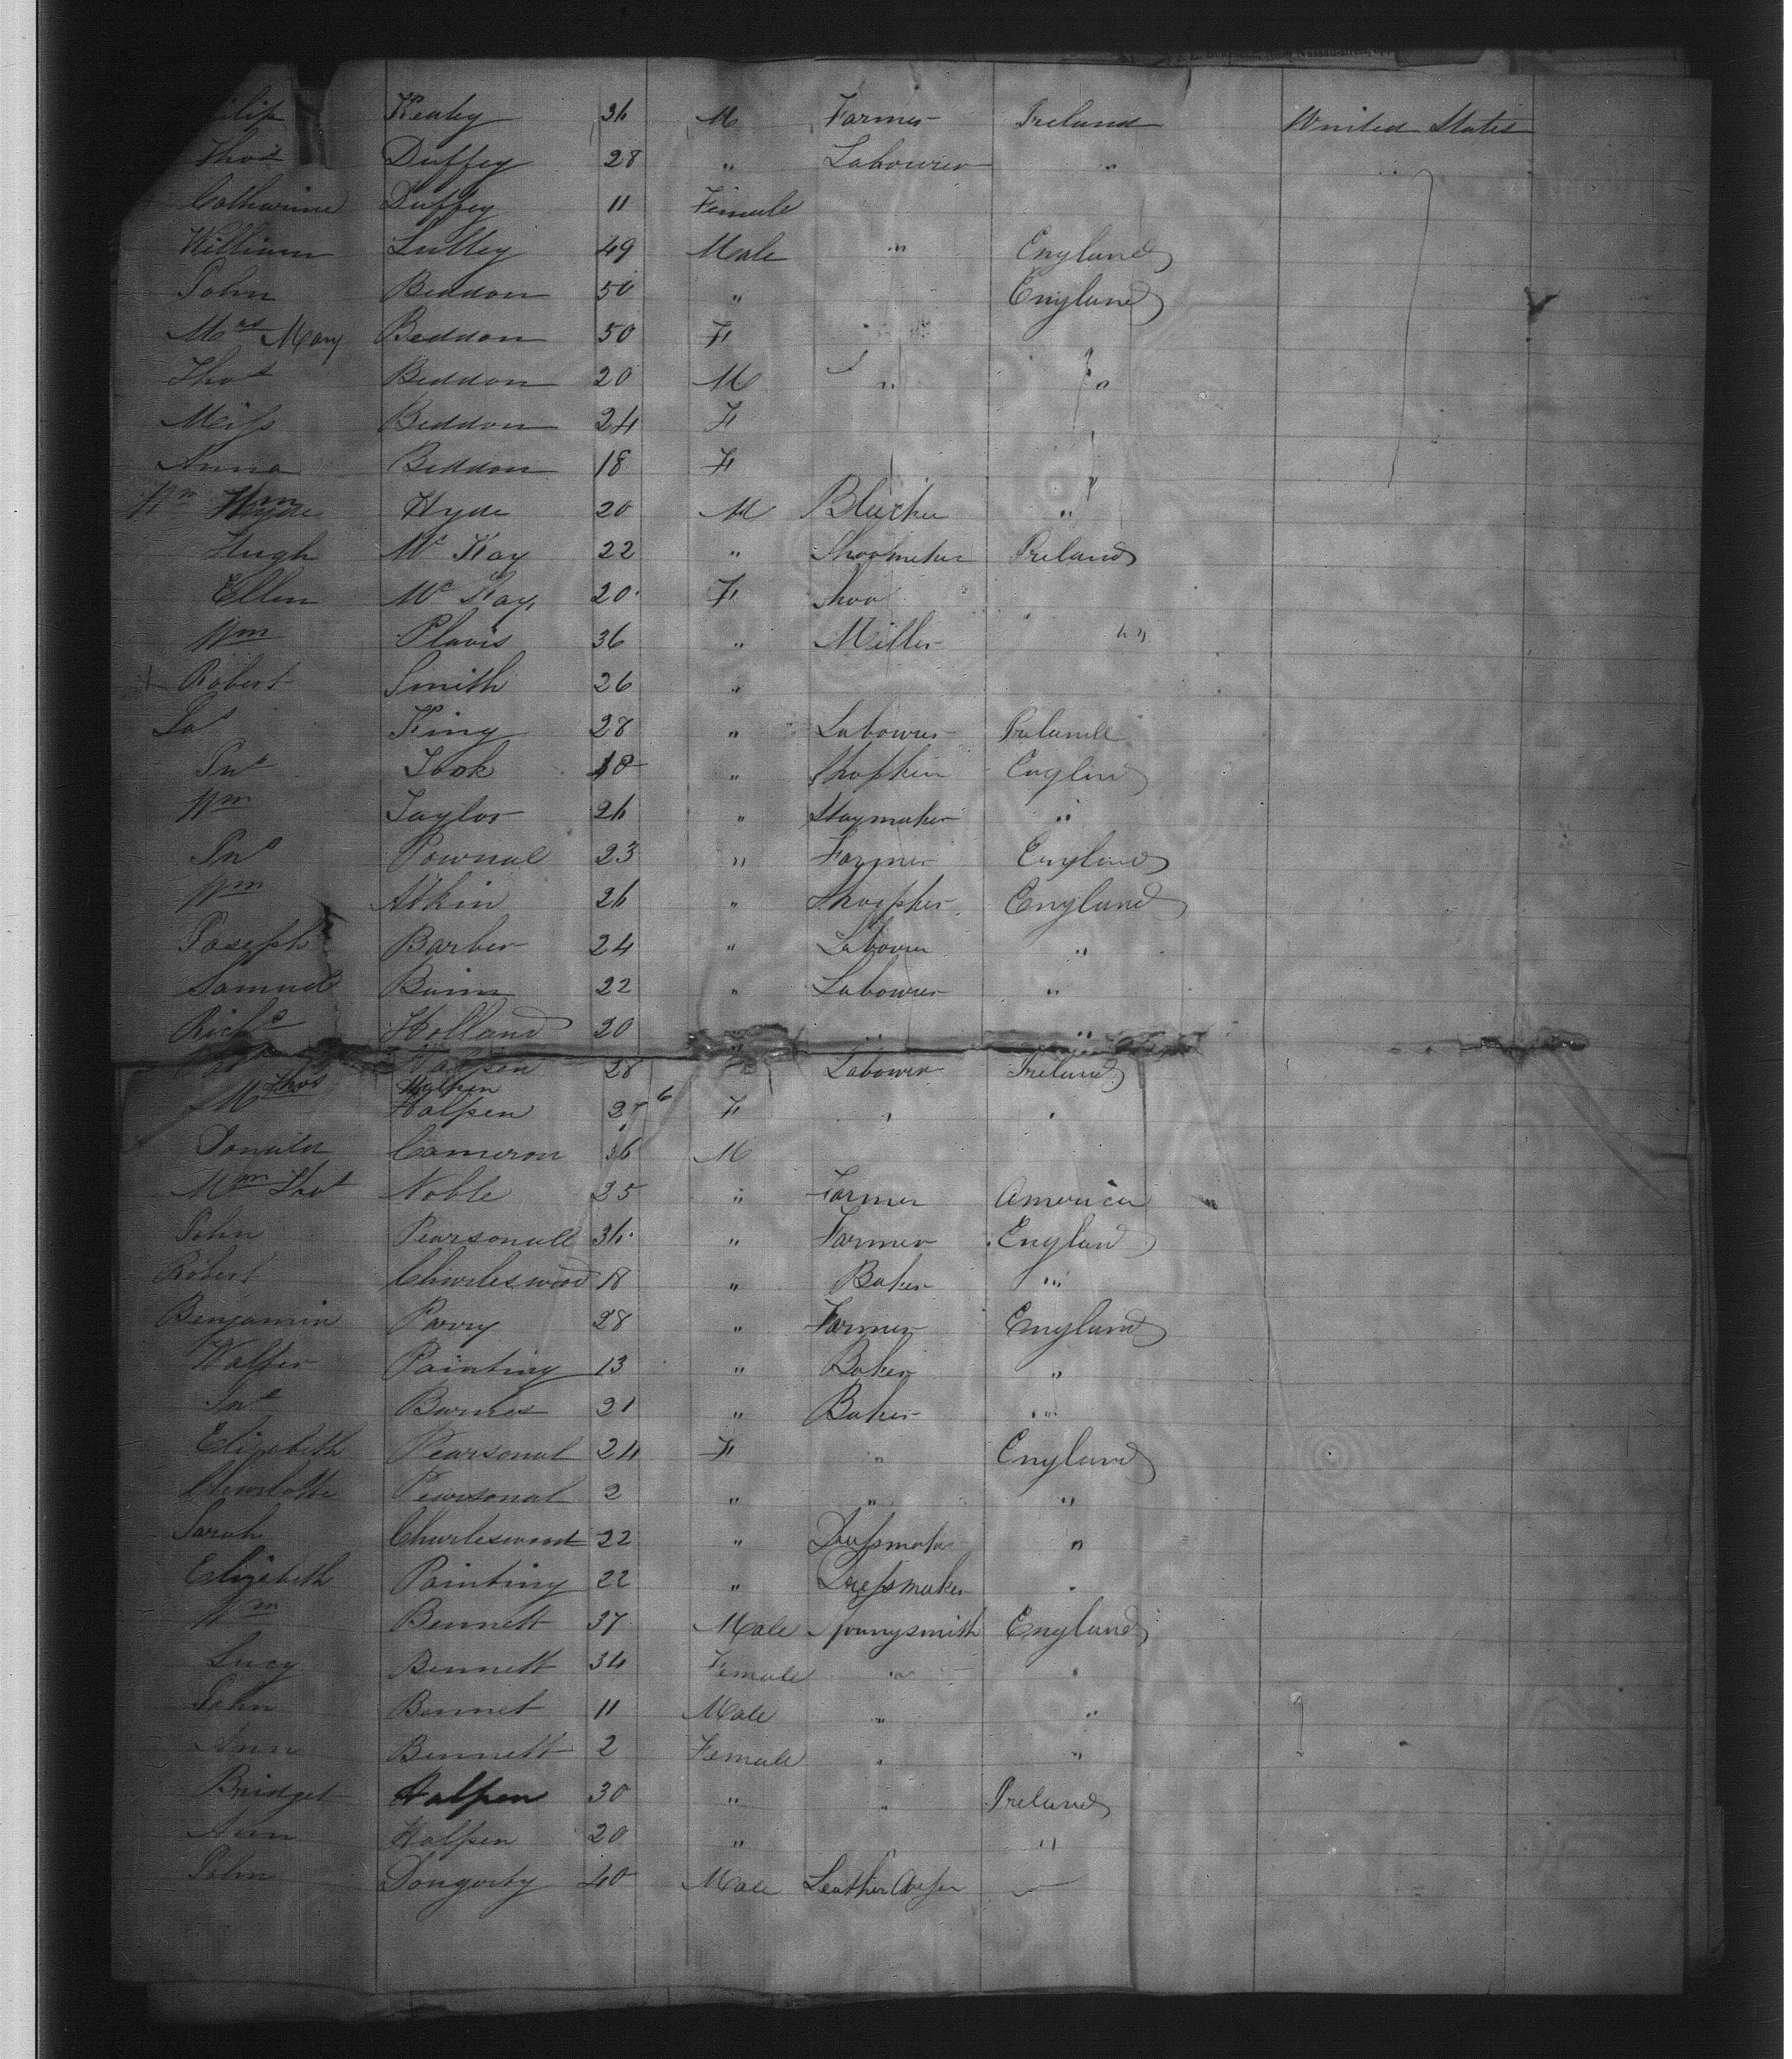 Kealey 36 M Farmer Ireland United States
Thos Duffey 28 " Labourer "
Catharine Duffey 11 Female
William Lulley 49 Male " England
John Beddon 50 " England
Mrs Mary Beddon 50 F
Thos Beddon 20 M " "
Miss Beddon 24 F
Anna Beddon 18 F
Wm Hyde 20 M "
Hugh Mc Kay 22 " Shoemaker Ireland
Ellen Mc Kay 20 F Shoe
Wm Plavis 36 " Miller "
Robert Smith 26 "
Jas King 28 " Labourer Ireland
Jno Took 18 " England
Wm Taylor 26 " Staymaker "
Jno Pownal 23 " Farmer England
Wm Atkin 26 " England
Joseph Barber 24 " Labourer "
Samuel 22 " Labourer "
Richd Holland 20 " " "
Halpen 28 Labourer Ireland
Thos Halpen
Halpen 27 6 F " "
Donald Cameron 36 M
Thos Noble 35 " Farmer America "
John Pearsonall 36 " Farmer England
Robert Charleswood 18 " Baker "
Benjamin Parry 28 " Farmer England
Walter Painting 13 " Baker "
Jno Barnes 21 " Baker "
Elizabeth Pearsonal 24 F " England
Charlotte Pearsonal 2 " " "
Sarah Charleswood 22 " Dressmaker "
Elizabeth Painting 22 " Dressmaker "
Wm Bennett 37 Male England
Lucy Bennett 34 Female " "
John Bennet 11 Male " "
Ann Bennett 2 Female " "
Bridget Halpen 30 " " Ireland
Ann Halpen 20 " "
John Dougerty 40 Male Leather